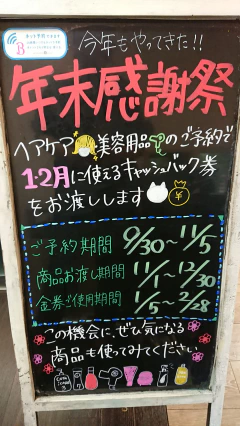 今年もやってきた!!
年末感謝祭
ヘアケア 美容用品 のご予約で
1・2月に使えるキャッシュバック券
をお渡しします ¥
ご予約期間 9/30〜11/5
商品お渡し期間 11/1〜12/30
金券ご使用期間 1/5〜2/28
この機会に、ぜひ気になる
商品も使ってみてください